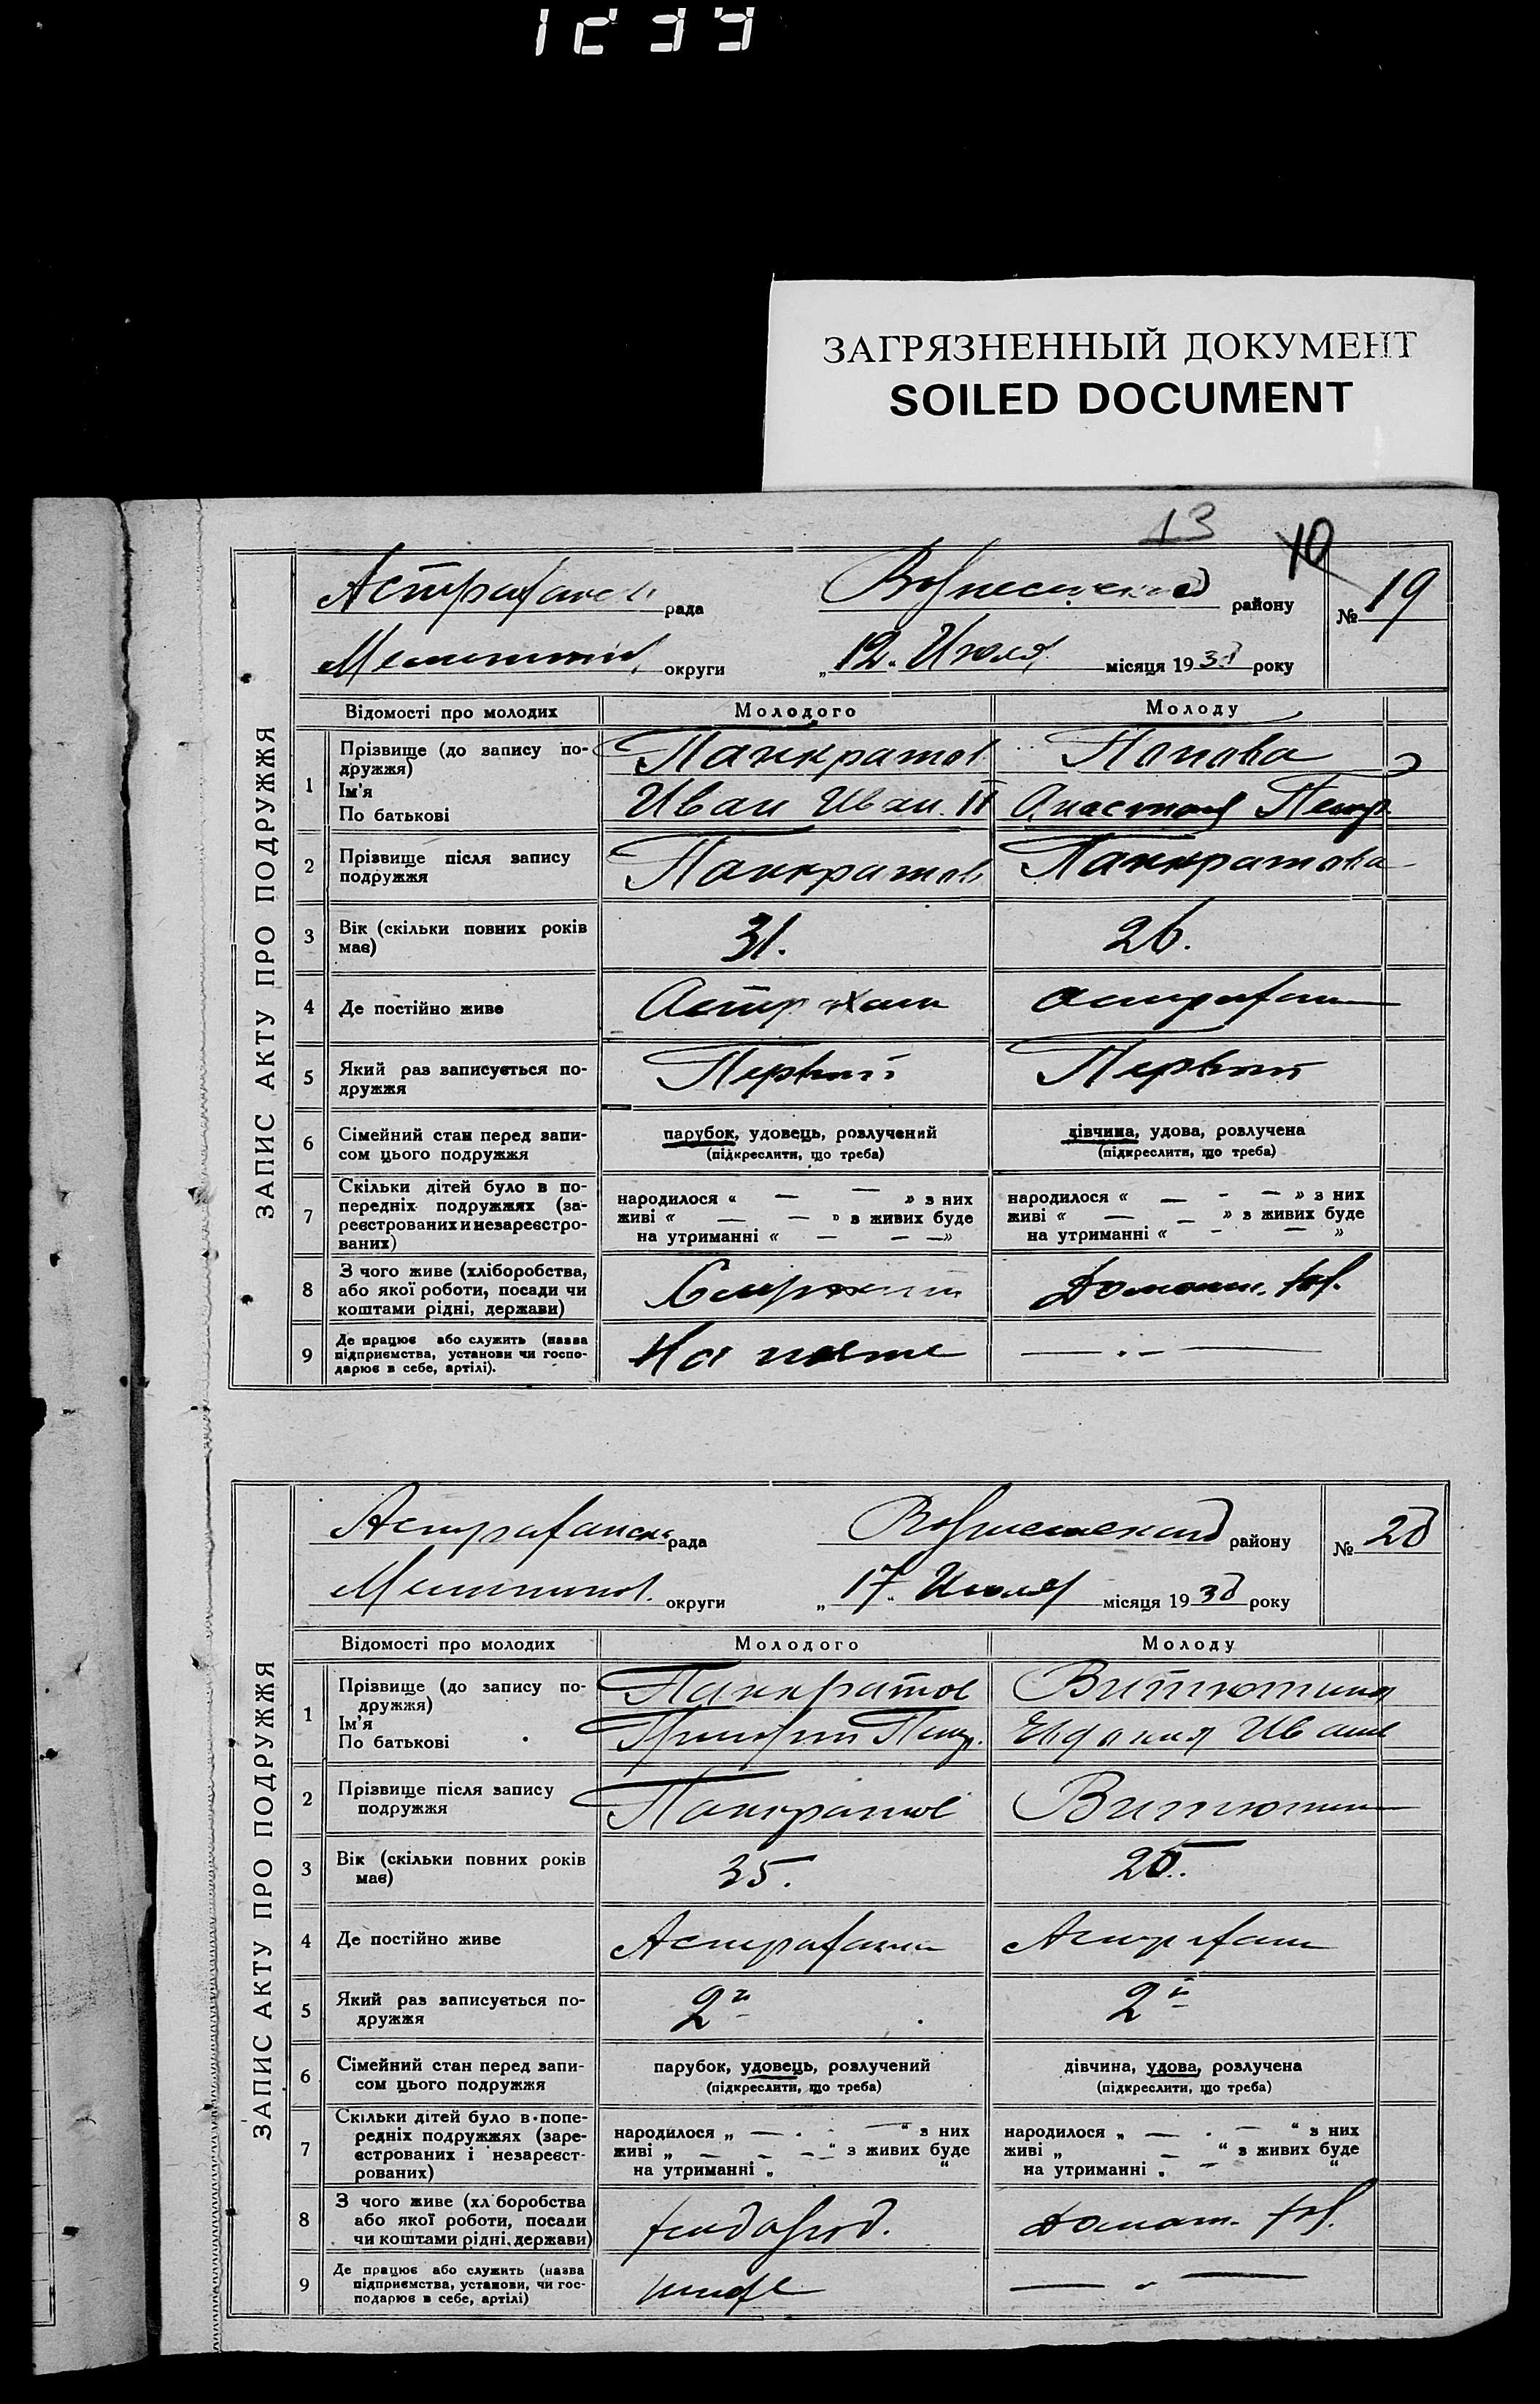 1239
ЗАГРЯЗНЕННЫЙ ДОКУМЕНТ
SOILED DOCUMENT
13 10
Астраханск рада Вознесенской району № 19
округи „12„ Июля місяця 1930 року
ЗАПИС АКТУ ПРО ПОДРУЖЖЯ
Відомості про молодих Молодого Молоду
1 Прізвище (до запису по-
дружжя) Панкратов Попова
Ім'я
По батькові Иван Иван. II Анастасия Петр.
2 Прізвище після запису
подружжя Панкратов Панкратова
3 Вік (скільки повних років
має) 31. 26.
4 Де постійно живе Астрахань Астрахань
5 Який раз записується по-
дружжя Первый Первый
6 Сімейний стан перед запи-
сом цього подружжя парубок, удовець, розлучений дівчина, удова, розлучена
(підкреслити, що треба) (підкреслити, що треба)
7 Скільки дітей було в по-
передніх подружжях (за-
реєстрованих и незареєстро-
ваних)
народилося « — — » з них народилося « — - — » з них
живі « — — » з живих буде живі « — — » з живих буде
на утриманні « — — —» на утриманні « - — »
8 З чого живе (хліборобства,
або якої роботи, посади чи
коштами рідні, держави) Домашн. хоз.
9 Де працює або служить (назва
підприємства, установи чи госпо-
дарює в себе, артілі). На — . — —
Астраханск рада Вознесенской району № 20
округи „17„ Июля місяця 1930 року
ЗАПИС АКТУ ПРО ПОДРУЖЖЯ
Відомості про молодих Молодого Молоду
1 Прізвище (до запису по-
дружжя) Панкратов Витютина
Ім'я
По батькові Григорий Петр. Евдокия Иванов
2 Прізвище після запису
подружжя Панкратов Витютин
3 Вік (скільки повних років
має) 35.
4 Де постійно живе Астрахань Астрахань
5 Який раз записується по-
дружжя 2й 2й
6 Сімейний стан перед запи-
сом цього подружжя парубок, удовець, розлучений дівчина, удова, розлучена
(підкреслити, що треба) (підкреслити, що треба)
7 Скільки дітей було в попе-
редніх подружжях (заре-
єстрованих і незареєст-
рованих)
народилося „ — . — “ з них народилося „ — . — “ з них
живі „ — - — “ з живих буде живі „ — “ з живих буде
на утриманні „ “ на утриманні „ - “
8 З чого живе (хл боробства
або якої роботи, посади
чи коштами рідні, держави) Домашн. хоз.
9 Де працює або служить (назва
підприємства, установи, чи гос-
подарює в себе, артілі) — „ —